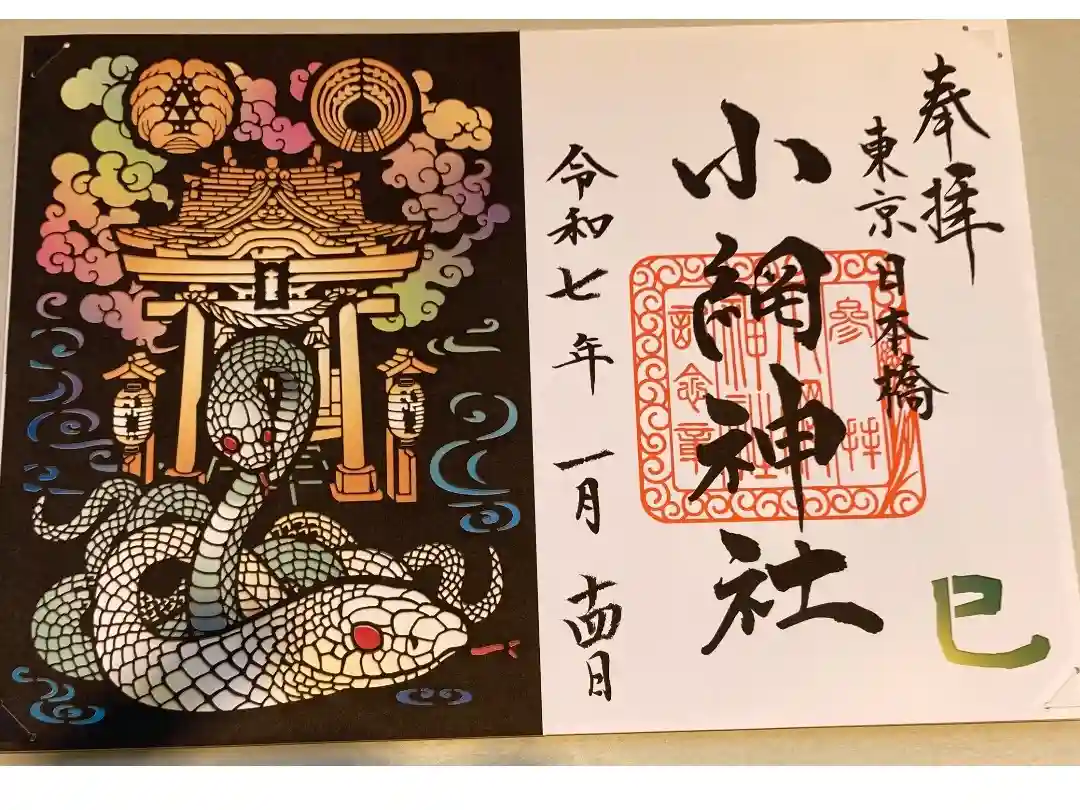 奉拝
東京
日本橋
小網神社
参拝
小網
神社
記念章
令和七年 一月 十四日
巳